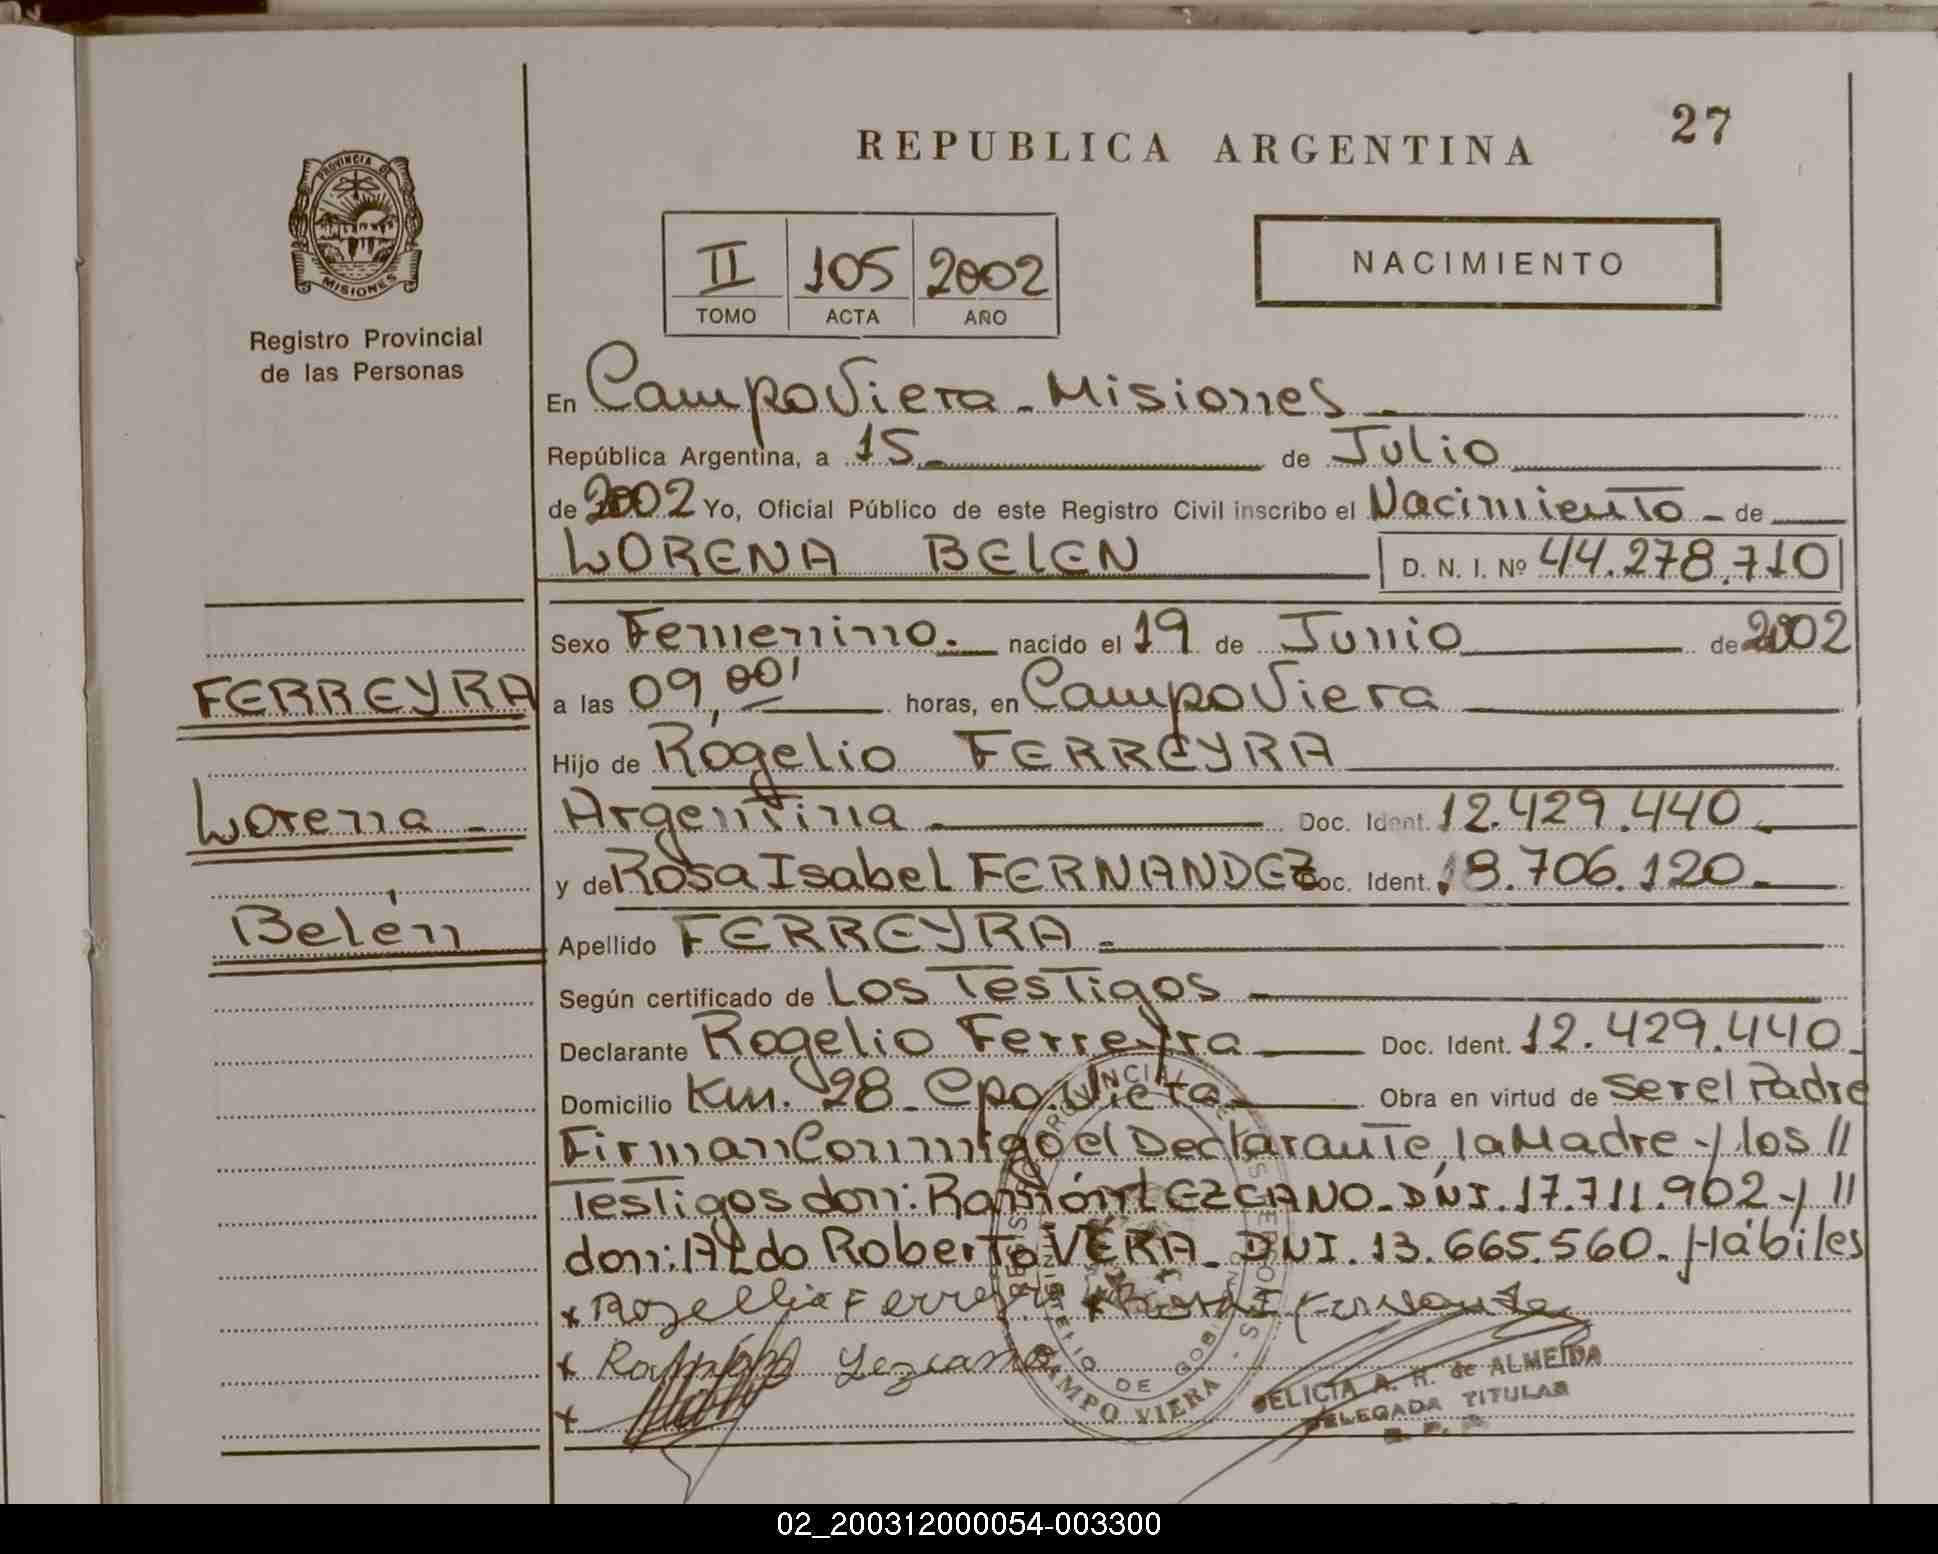 27
REPUBLICA ARGENTINA
PROVINCIA DE
MISIONES
Registro Provincial
de las Personas
II 105 2002
TOMO ACTA AÑO
NACIMIENTO
En Campo Viera - Misiones -
República Argentina, a 15 - de Julio
de 2002 Yo, Oficial Público de este Registro Civil inscribo el Nacimiento - de
LORENA BELEN D. N. I. Nº 44.278.710
Sexo Femenino. - nacido el 19 de Junio de 2002
FERREYRA
a las 09,00' horas, en Campo Viera
Hijo de Rogelio FERREYRA
Lorena -
Argentina Doc. Ident. 12.429.440 -
y de Rosa Isabel FERNANDEZ Doc. Ident. 18.706.120 -
Belén
Apellido FERREYRA -
Según certificado de Los Testigos
Declarante Rogelio Ferreyra Doc. Ident. 12.429.440 -
Domicilio Km. 28 - Cpo. Viera Obra en virtud de Ser el Padre
Firman Conmigo el Declarante, la Madre - y los //
Testigos don: Ramón LEZCANO - DNI. 17.711.902 - y //
don: ALdo Roberto VERA - DNI. 13.665.560. Hábiles
x Rogellio Ferreyra x Rosa I Fernande
x Ramón Lezcano
x
CAMPO VIERA
FELICIA A. H. de ALMEIDA
DELEGADA TITULAR
02_200312000054-003300